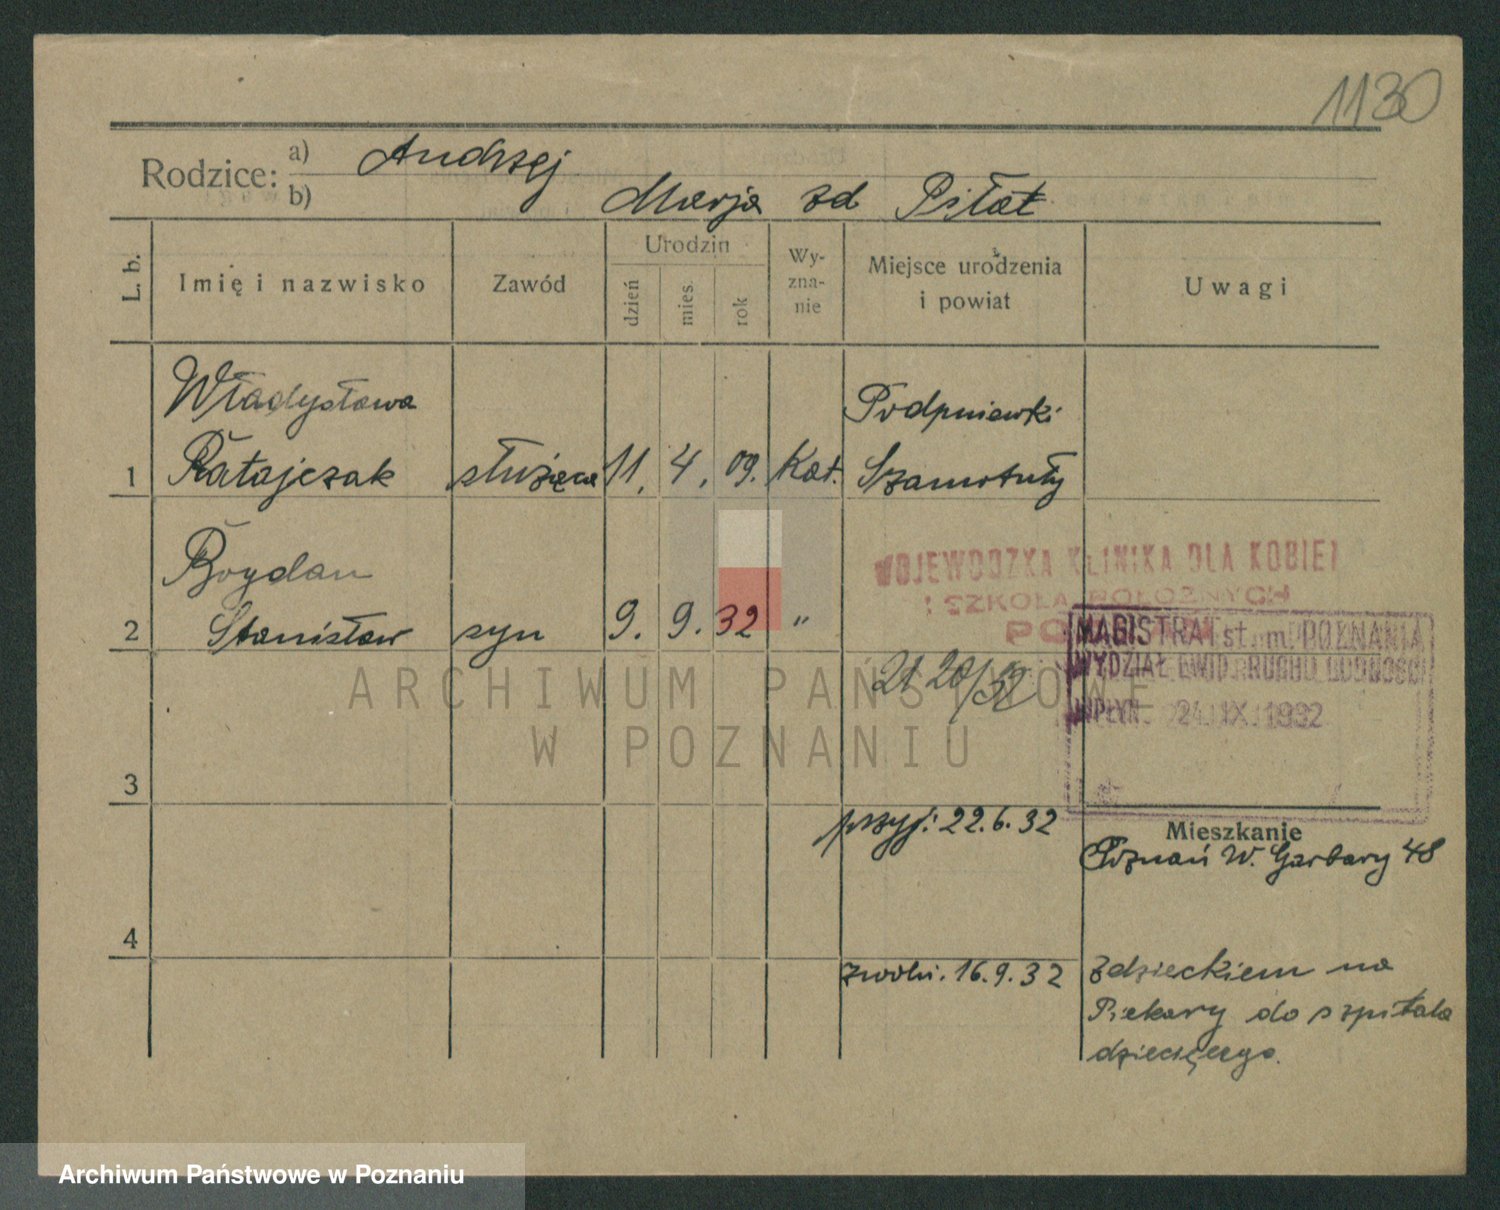 1130
Rodzice: a) Andrzej
b) Marja zd Piłat
L. b. Imię i nazwisko Zawód Urodzin dzień mies. rok Wyznanie Miejsce urodzenia i powiat Uwagi
Władysława Podpniewki
1 Ratajczak służąca 11. 4. 09. Kat. Szamotuły
Bogdan
2 Stanisław syn 9. 9. 32 "
WOJEWÓDZKA KLINIKA DLA KOBIET
I SZKOŁA POŁOŻNYCH
MAGISTRAT st. m. POZNANIA
WYDZIAŁ EWID. RUCHU LUDNOŚCI
WPŁYN. 24. IX. 1932
ARCHIWUM PAŃSTWOWE
W POZNANIU
3
przyj: 22.6.32
Mieszkanie
Poznań W. Garbary 48
4
zwoln. 16.9.32
z dzieckiem na
Piekary do szpitala
dziecięcego.
Archiwum Państwowe w Poznaniu